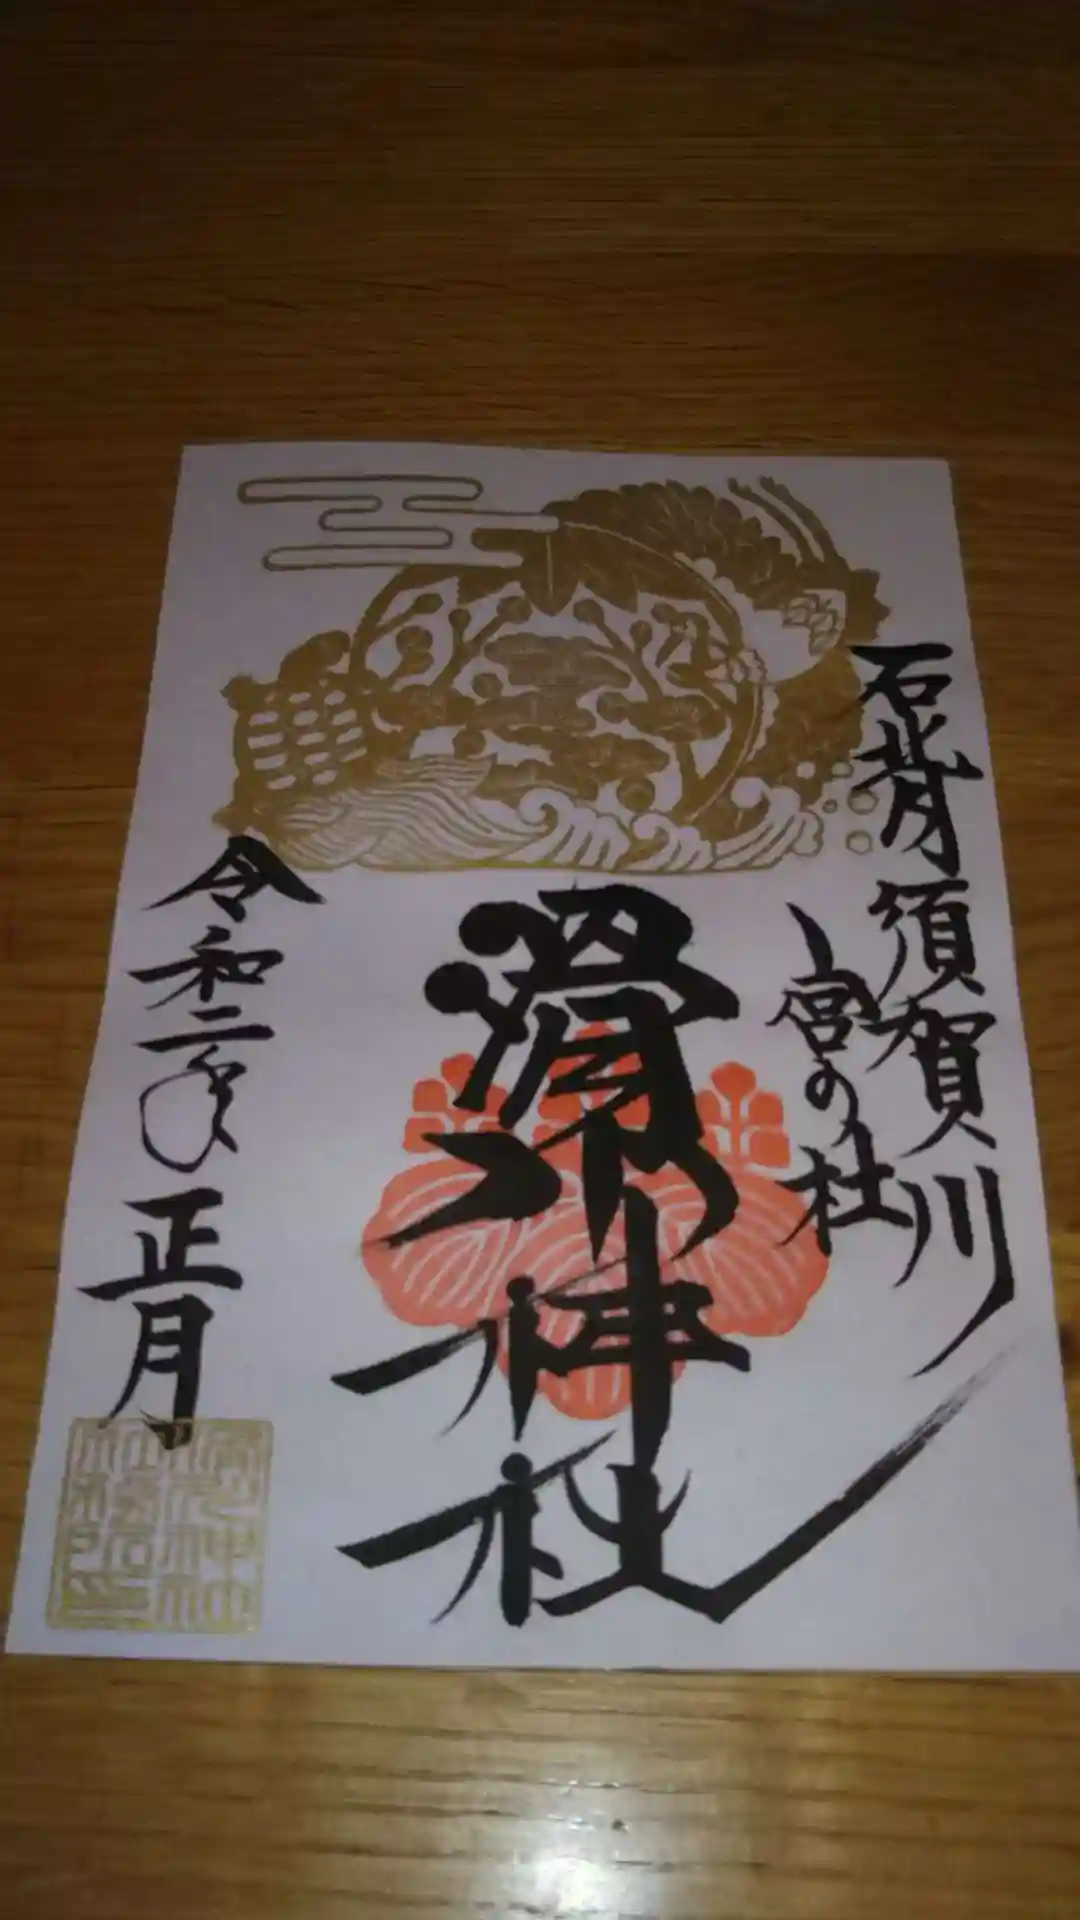 石背須賀川
宮の杜
滑川神社
令和二年正月